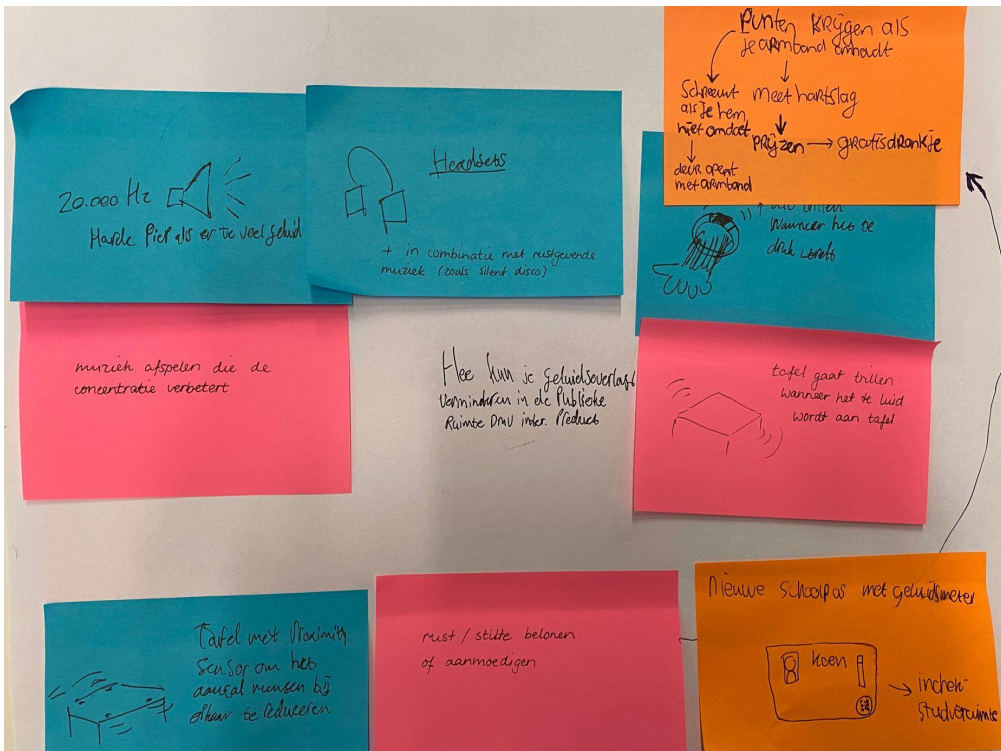 Punten krijgen als
je armband omhoudt
Schreeuwt
als je hem
niet omdoet
deur opent
met armband
meet hartslag
prijzen → gratis drankje
20.000 Hz
Harde Piep als er te veel geluid
Headsets
+ in combinatie met rustgevende
muziek (zoals silent disco)
Wanneer het te
druk wordt
muziek afspelen die de
concentratie verbetert
Hoe kun je geluidsoverlast
verminderen in de Publieke
Ruimte DMV inter. Product
tafel gaat trillen
wanneer het te luid
wordt aan tafel
Tafel met Proximity
Sensor om het
aantal mensen bij
elkaar te reduceren
rust / stilte belonen
of aanmoedigen
Nieuwe Schoolpas met geluidsmeter
koen
→ inchek
studieruimte